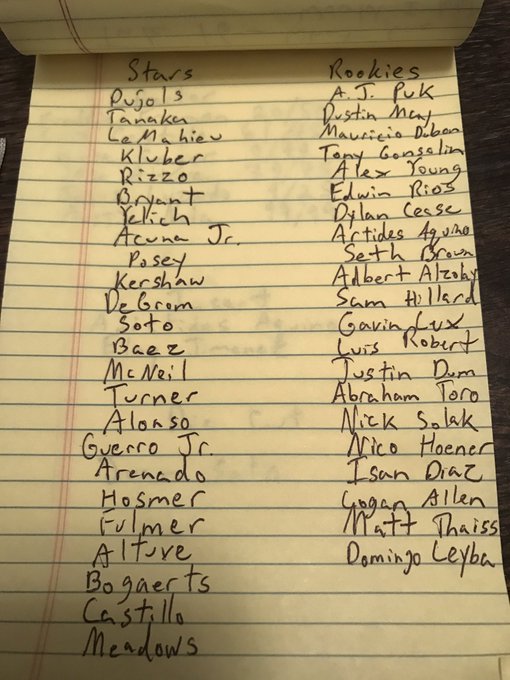 Stars
Pujols
Tanaka
LeMahieu
Kluber
Rizzo
Bryant
Yelich
Acuna Jr.
Posey
Kershaw
DeGrom
Soto
Baez
McNeil
Turner
Alonso
Guerro Jr.
Arenado
Hosmer
Fulmer
Altuve
Bogaerts
Castillo
Meadows
Rookies
A.J. Puk
Dustin May
Mauricio Dubon
Tony Gonsolin
Alex Young
Edwin Rios
Dylan Cease
Artides Aquino
Seth Brown
Adbert Alzolay
Sam Hillard
Gavin Lux
Luis Robert
Justin Dum
Abraham Toro
Nick Solak
Nico Hoener
Isan Diaz
Logan Allen
Matt Thaiss
Domingo Leyba